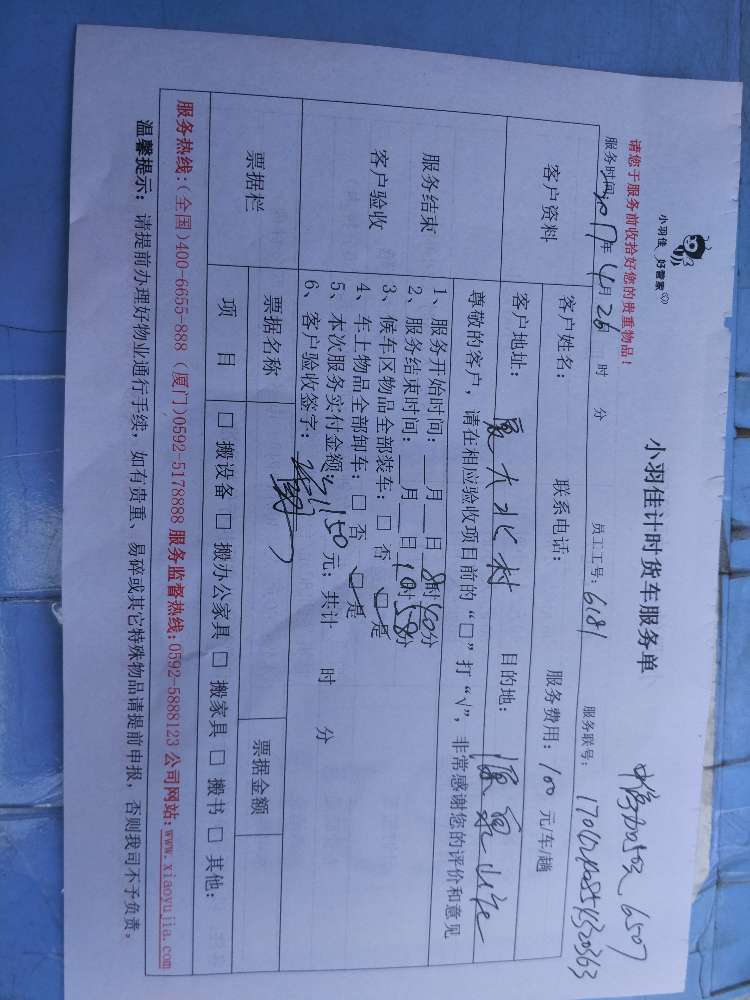 小羽佳 好管家
小羽佳计时货车服务单
6507
请您于服务前收拾好您的贵重物品!
服务时间: 2017年 4月 26 时 分 员工工号: 6181 服务联号:
客户资料
客户姓名: 联系电话: 服务费用: 100 元/车/趟
客户地址: 厦大水村 目的地:
服务结束
客户验收
尊敬的客户, 请在相应验收项目前的“□”打“√”, 非常感谢您的评价和意见
1、服务开始时间: __月__日 8时40分
2、服务结束时间: __月__日 10时58分
3、候车区物品全部装车: □ 否 □ 是
4、车上物品全部卸车: □ 否 □ 是
5、本次服务实付金额: 150 元; 共计 时 分
6、客户验收签字:
票据栏
票据名称 票据金额
项 目 □ 搬设备 □ 搬办公家具 □ 搬家具 □ 搬书 □ 其他:
服务热线:(全国)400-6655-888 (厦门)0592-5178888 服务监督热线:0592-5888123 公司网站:www.xiaoyujia.com
温馨提示: 请提前办理好物业通行手续, 如有贵重、易碎或其它特殊物品请提前申报, 否则我司不予负责。